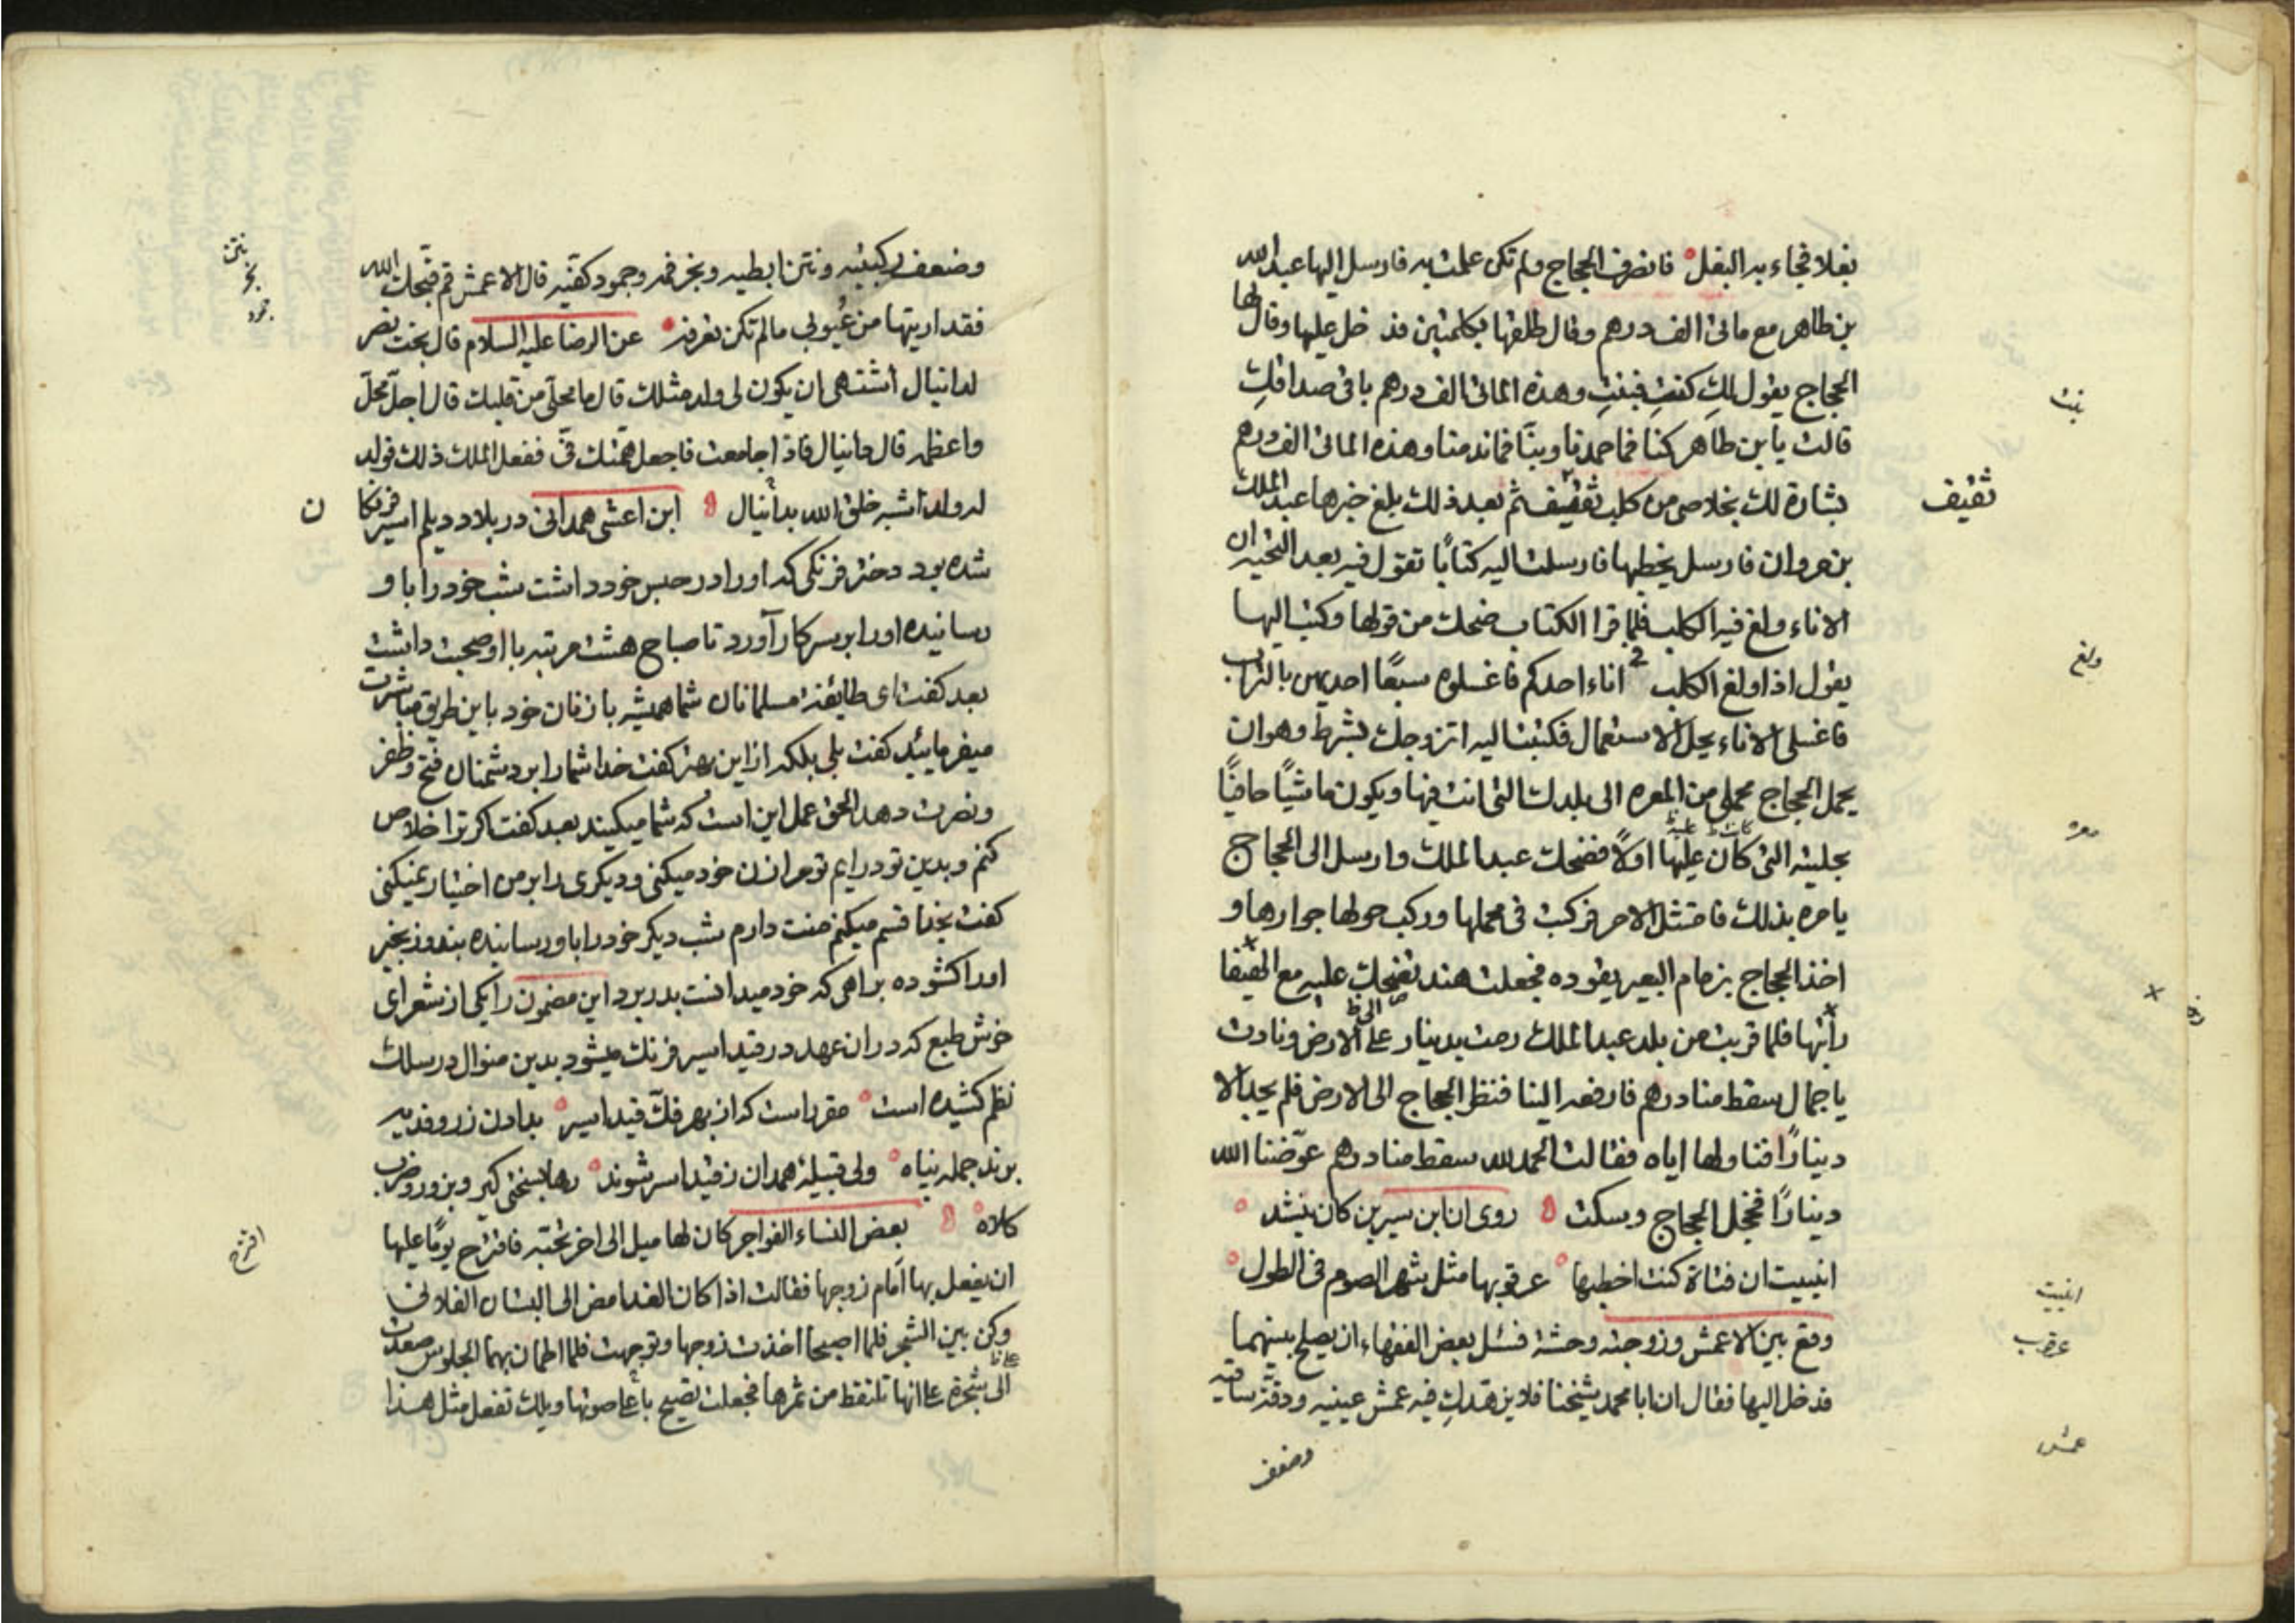 بغلا فجاء به البغل فانصرف الحجاج ولم تكن علمت به فارسل اليها عبد الله
بن طاهر مع مائتى الف درهم وقال طلقها بكلمتين فدخل عليها وقال لها
الحجاج يقول لكِ كنتِ فبنتِ وهذه المائتا الف درهم باقى صداقكِ
قالت يابن طاهر كنا فما حمدنا وبنّا فما ندمنا وهذه المائتا الف درهم
بشارة لك بخلاصى من كلب ثقيف ثم بعد ذلك بلغ خبرها عبد الملك
بن مروان فارسل يخطبها فارسلت اليه كتابًا تقول فيه بعد التحية ان
الاناء ولغ فيه الكلب فلما قرا الكتاب ضحك من قولها وكتب اليها
يقول اذا ولغ الكلب فى اناء احدكم فاغسلوه سبعًا احديهن بالتراب
فاغسلى الاناء يحل الاستعمال فكتبت اليه اتزوجك بشرط وهو ان
يحمل الحجاج محملى من المعره الى بلدك التى انت فيها ويكون ماشيًا حافيًا
بحليته التى كان عليها اولاً فضحك عبد الملك وارسل الى الحجاج
يامره بذلك فامتثل الامر فركبت فى محملها وركب حولها جوارها و
اخذ الحجاج بزمام البعير يقوده فجعلت هند تضحك عليه مع الهيفا
دأيتها فلما قربت من بلد عبد الملك رمت بدينار على الارض ونادت
ياجمال سقط منا درهم فارفعه الينا فنظر الحجاج الى الارض فلم يجد الا
دينارًا فناولها اياه فقالت الحمد لله سقط منا درهم عوّضنا الله
دينارًا فخجل الحجاج وسكت روى ان ابن سيرين كان ينشد
انبيت ان فتاة كنت اخطبها عرقوبها مثل شهر الصوم فى الطول
وقع بين الاعمش وزوجته وحشة فسئل بعض الفقهاء ان يصلح بينهما
فدخل اليها فقال ان ابا محمد شيخنا فلا يزهدك فيه عمش عينيه ودقة ساقيه
وضعف
بنت
ثقيف
ولغ
معره
انبيت
عرقوب
عمش
وضعف ركبتيه ونتن ابطيه وبخر فمه وجمود كفيه قال الاعمش قم قبحك الله
فقد اريتها من عُيوبى مالم تكن تعرفه عن الرضا عليه السلام قال بخت نصر
لدانيال اشتهى ان يكون لى ولد مثلك قال ما محلى من قلبك قال اجل محل
واعظمه قال دانيال فاذا جامعت فاجعل همتك فىّ ففعل الملك ذلك فولد
له ولد اشبه خلق الله بدانيال ابن اعشى همدانى در بلاد ديلم اسير فرنكا
شده بود دختر فرنكى كه او را در حبس خود داشت شب خود را با و
رسانيده او را بر سر كار آورد تا صباح هشت مرتبه با او صحبت داشت
بعد كفت اى طايفه مسلمانان شما هميشه با زنان خود باين طريق مباشرت
ميفرمائيد كفت بلى بلكه ازاين بهتر كفت خدا شما را بر دشمنان فتح وظفر
ونصرت دهد الحق عمل اين است كه شما ميكنيد بعد كفت اكر ترا خلاص
كنم وبدين تو درايم تو مرا زن خود ميكنى وديكرى را بر من اختيار نميكنى
كفت بخدا قسم ميكنم منت دارم شب ديكر خود را باو رسانيده بند وزنجير
اورا كشوده براهى كه خود ميدانست بدر برد اين مضمون را يكى از شعراى
خوش طبع كه دران عهد در قيد اسير فرنك ميشود بدين منوال در سلك
نظم كشيده است مقرر است كه از بهر فك قيد اسير بدادن زر وفديه
برند جمله پناه ولى قبيله همدان ز قيد اسر شوند رها بسختى كير وبزور وضرب
كلاه بعض النساء الفواجر كان لها ميل الى اخر تحبّه فاقترح يومًا عليها
ان يفعل بها اَمام زوجها فقالت اذا كان الغد امض الى البستان الفلانى
وكن بين الشجر فلما اصبحا اخذت زوجها وتوجهت فلما اطمان بهما الجلوس صعدت
الى شجرة على انها تلتقط من ثمرها فجعلت تصيح باعلى صوتها ويلك تفعل مثل هذا
نتن
بخر
جمد
ن
اقترح